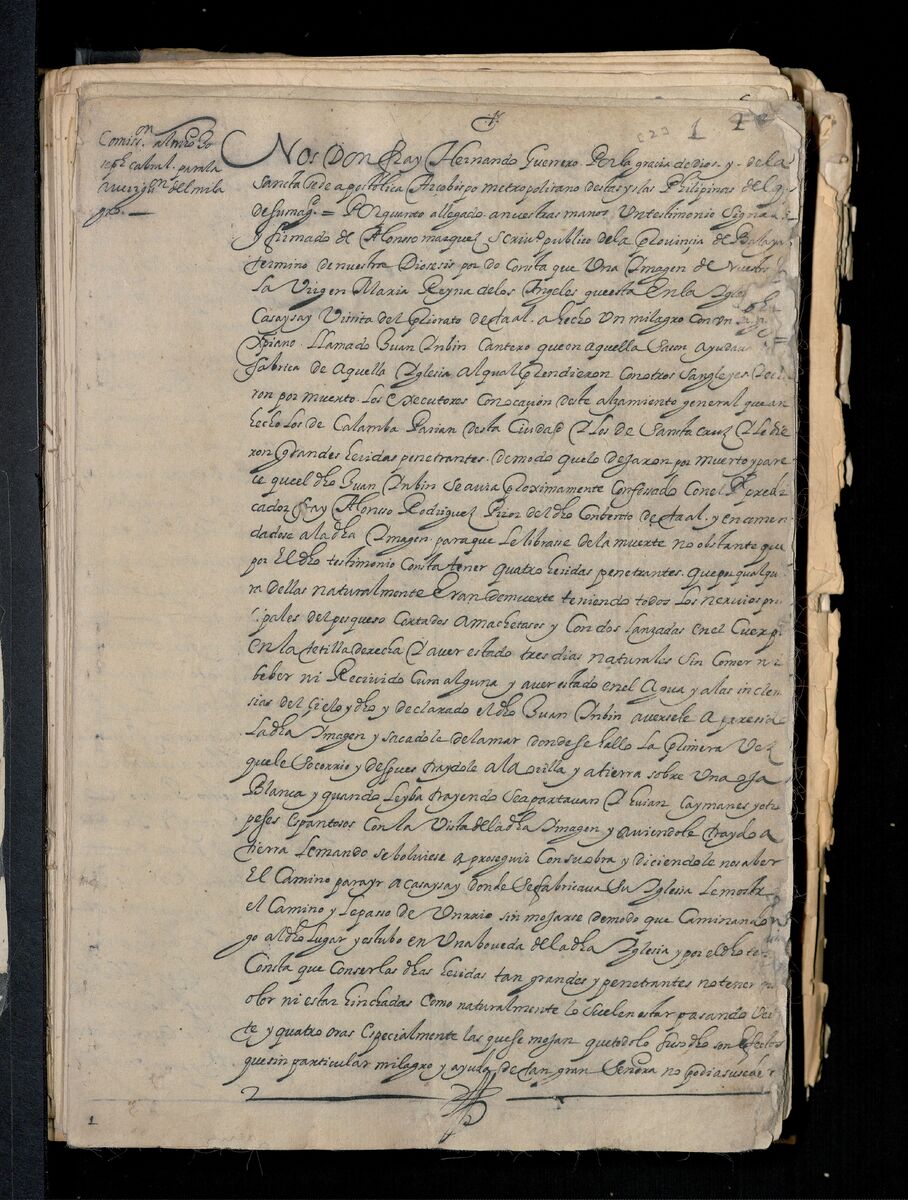 +
c23 1
Comisi.on al mro Jo
seph cabral. para la
averigon. del mila
gro.
Nos Don Fray Hernando Guerrero Por la gracia de dios. y. de la
Sancta Sede apostolica Arcobispo metropolitano destas yslas Philipinas del q.
de su mag. = Por quanto a llegado. a nuestras manos. Un testimonio Signa
y firmado de Alonso marquez Scriuo publico de la Provinçia de Balaya
termino de nuestra Diocesis por do Consta que Una Imagen de Nuestr
La Virgen Maria Reyna de los Angeles que esta En la Igle
Casaysay Visita del Priorato de taal. a hecho Un milagro con Un
Xpiano. LLamado Juan Inbin Cantero que en aquella Sacon ayudaua
fabrica de Aquella Iglesia al qual Prendieron Con otros Sangleyes
ron por muerto. Los Executores Con ocaçion deste alzamiento general que an
hecho Los de Calamba Parian desta Ciudad Y Los de Sancta Cruz Y Le die
ron grandes heridas penetrantes. de modo que lo dejaron por muerto y pare
ce que el dho Juan Inbin Se auia Proximamente Confesado Con el Pe predi
cador fray Alonso Rodriguez Prior del dho Conbento de taal. y encomen
dadose a la dha Imagen. para que Le librase de la muerte no obstante que
por El dho testimonio Consta tener quatro heridas penetrantes. que por qualqu
ra dellas naturalmente Eran de muerte teniendo todos Los nervios pri
çipales del pesqueso Cortados A machetasos y Con dos Lanzadas en el Cuerp
en la tetilla derecha Y aver estado tres dias naturales Sin Comer ni
beber ni Recivido Cura alguna y aver estado en el Agua y a las inclem
sias del Çielo y dho y declarado el dho Juan Inbin averse le Aparesid
La dha Imagen y sacadole de la mar donde se hallo La Primera Vez
que le Socorrio y despues traydole a la orilla y a tierra sobre Una oja
Blanca y quando Le yba trayendo Se apartauan Y huian Caymanes y otr
peses Espantosos Con la Vista de la dha Imagen y aviendole traydo a
tierra Le mando se bolviese A proseguir Con su obra y diciendole no saber
El Camino para yr a Casaysay donde Se fabricaua Su Iglesia Le mostr
el Camino y Le paso de Un rio sin mojarse de modo que Caminand
go al dho Lugar y estubo en Una boveda de la dha Iglesia y por el dho te
Consta que Con ser las dhas heridas tan grandes y penetrantes no tener m
olor ni estar hinchadas Como naturalmente lo Suelen estar pasando Vei
te y quatro oras Especialmente las que se mojan que todo lo suso dho son Efectos
que sin particular milagro y ayuda de tan gran Señora no podia suceder
1